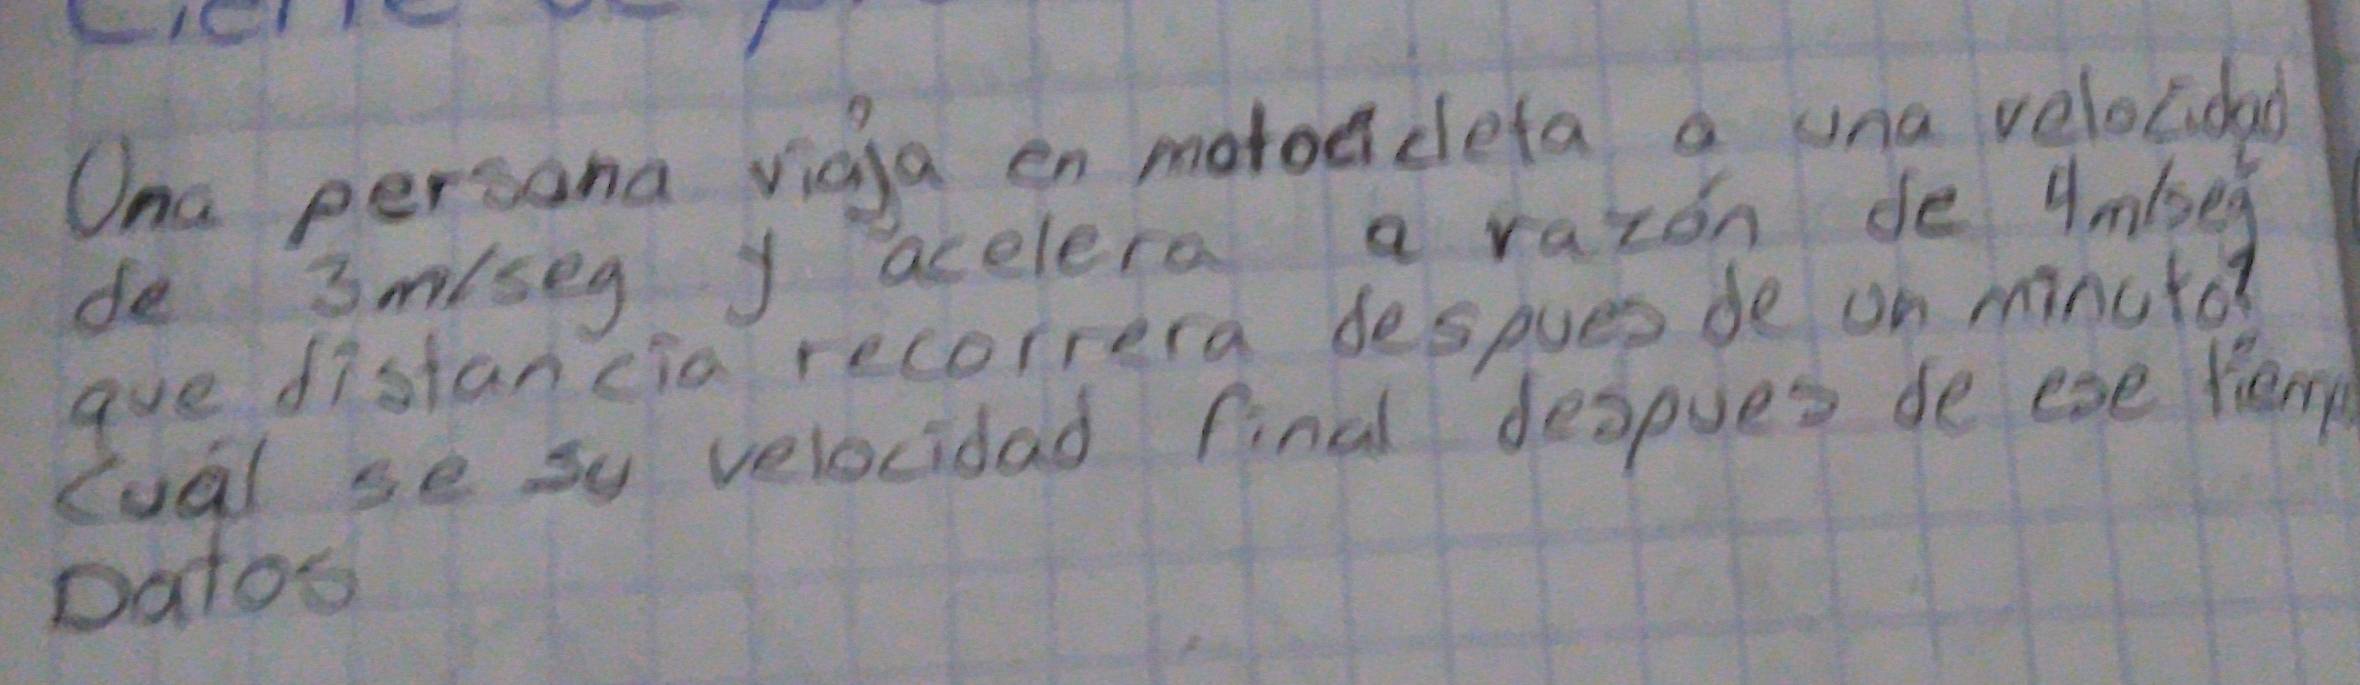 Una persona viaja en motocicleta a una velocidad
de 3m/seg y acelera a razón de 4m/seg
que distancia recorrera despues de un minuto?
Cuál se su velocidad final despues de ese tiemp
Datos